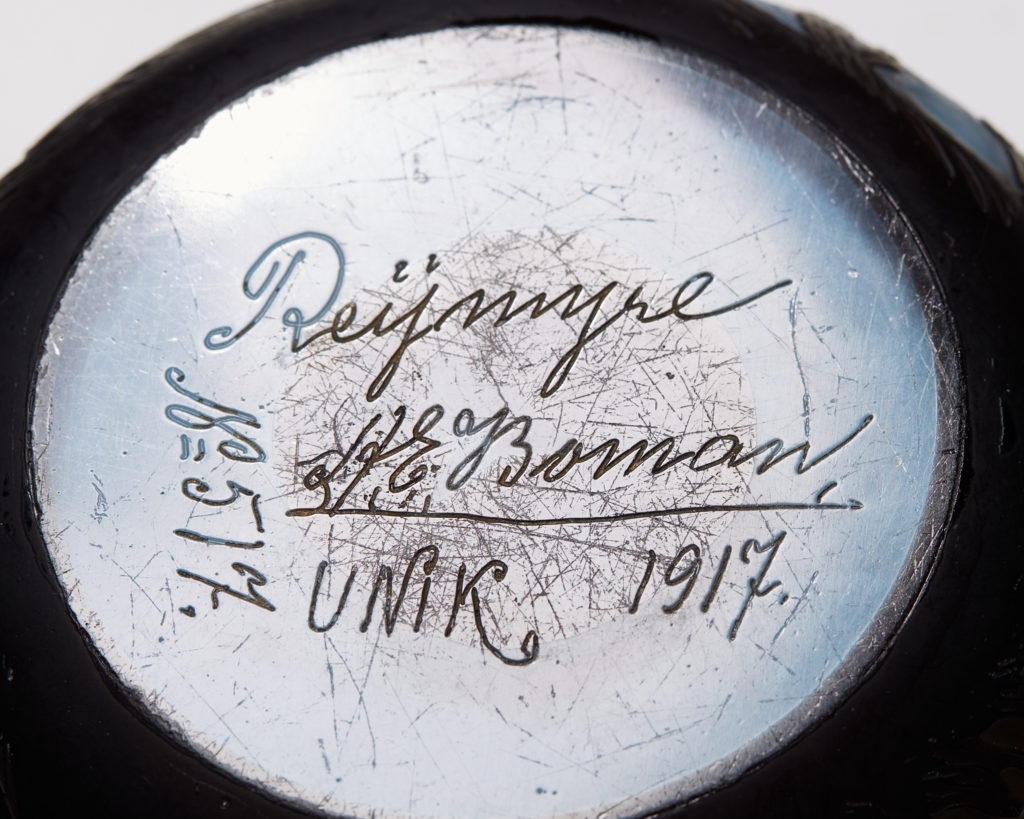 Reijmyre
A E Boman
UNiK 1917.
No 517.